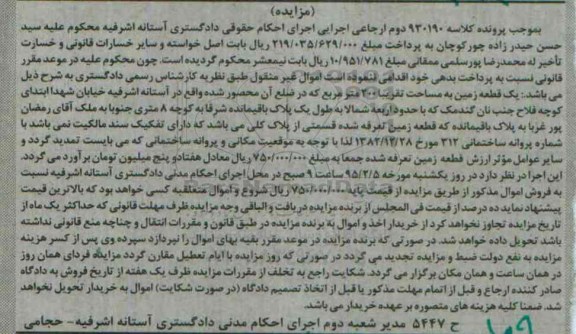 (مزایده)
بموجب پرونده کلاسه ۹۳۰۱۹۰ دوم ارجاعی اجرایی اجرای احکام حقوقی دادگستری آستانه اشرفیه محکوم علیه سید
حسن حیدر زاده چورکوچان به پرداخت مبلغ ۲۱۹/۰۳۵/۶۲۹/۰۰۰ ریال بابت اصل خواسته و سایر خسارات قانونی و خسارت
تأخیر له محمدرضا پورسلمی ممقانی مبلغ ۱۰/۹۵۱/۷۸۱ ریال بابت نیمعشر محکوم گردیده است. چون محکوم علیه در موعد مقرر
قانونی نسبت به پرداخت بدهی خود اقدامی ننموده است اموال غیر منقول طبق نظریه کارشناس رسمی دادگستری به شرح ذیل
می باشد: یک قطعه زمین به مساحت تقریبا ۲۰۰ متر مربع که در ضلع آن محصور شده واقع در آستانه اشرفیه خیابان شهدا ابتدای
کوچه فلاح جنب نان گندمک که با حدود اربعه شمالا به طول یک پلاک باقیمانده شرقا به کوچه ۸ متری جنوبا به ملک آقای رمضان
پور غربا به پلاک باقیمانده که قطعه زمین تعرفه شده قسمتی از پلاک کلی می باشد که دارای تفکیک سند مالکیت نمی باشد با
شماره پروانه ساختمانی ۳۱۲ مورخ ۱۳۸۳/۱۲/۲۸ لذا با توجه به موقعیت مکانی و پروانه ساختمانی که می بایست تمدید گردد و
سایر عوامل مؤثر ارزش قطعه زمین تعرفه شده جمعا به مبلغ ۷۵۰/۰۰۰/۰۰۰ ریال معادل هفتاد و پنج میلیون تومان برآورد می گردد.
این اجرا در نظر دارد در روز یکشنبه مورخه ۹۵/۲/۵ ساعت ۹ صبح در محل اجرای احکام مدنی دادگستری آستانه اشرفیه نسبت
به فروش اموال مذکور از طریق مزایده از قیمت پایه ۷۵۰/۰۰۰/۰۰۰ ریال شروع و اموال متعلقبه کسی خواهد بود که بالاترین قیمت
پیشنهاد نماید ده درصد از قیمت فی المجلس از برنده مزایده دریافت و الباقی وجه مزایده ظرف مهلت قانونی که حداکثر یک ماه از
تاریخ مزایده تجاوز نخواهد کرد از خریدار اخذ و اموال به برنده مزایده در طبق قانون و مقررات انتقال و چناچه منع قانونی نداشته
باشد تحویل داده خواهد شد. در صورتی که برنده مزایده در موعد مقرر بقیه بهای اموال را نپردازد سپرده وی پس از کسر هزینه
مزایده به نفع دولت ضبط و مزایده تجدید می گردد در صورتی که روز مزایده با ایام تعطیل مقارن گردد مزایده فردای همان روز
در همان ساعت و همان مکان برگزار می گردد. شکایت راجع به تخلف از مقررات مزایده ظرف یک هفته از تاریخ فروش به دادگاه
صادر کننده ارجاع و قبل از اتمام مهلت مذکور یا قبل از اتخاذ تصمیم دادگاه (در صورت شکایت) اموال به خریدار تحویل نخواهد
شد. ضمنا کلیه هزینه های متصوره بر عهده خریدار می باشد.
ح ۵۴۴۷ مدیر شعبه دوم اجرای احکام مدنی دادگستری آستانه اشرفیه- حجامی